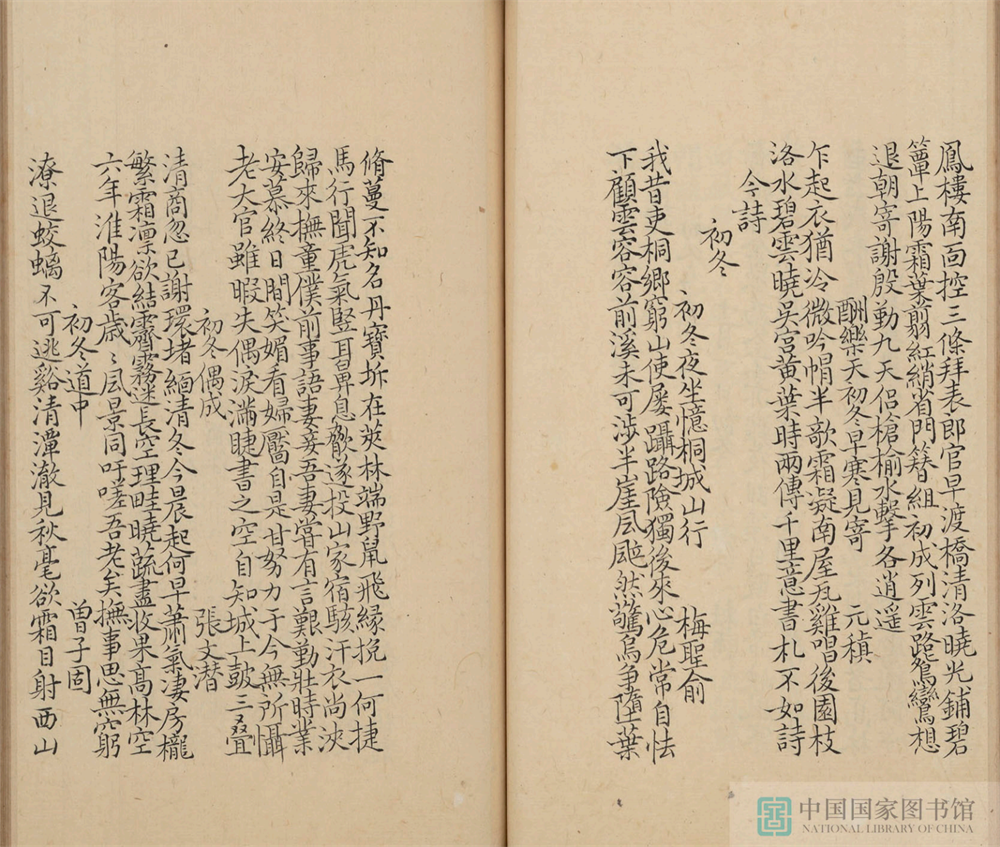 鳳樓南面控三條拜表郎官早渡橋清洛曉光鋪碧
簟上陽霜葉翦紅綃省門簪組初成列雲路鴛鸞想
退朝寄謝殷勤九天侶槍榆水擊各逍遥
酬樂天初冬早寒見寄 元稹
乍起衣猶冷微吟帽半欹霜凝南屋瓦雞唱後園枝
洛水碧雲曉吳宮黄葉時兩傳千里意書札不如詩
今詩
初冬
初冬夜坐憶桐城山行 梅聖俞
我昔吏桐鄉窮山使屢躡路險獨後來心危常自怯
下顧雲容容前溪未可涉半崖風颸然驚鳥争墮葉
脩蔓不知名丹寶坼在莢林端野鼠飛緣挽一何捷
馬行聞虎氣竪耳鼻息歙遂投山家宿駭汗衣尚浹
歸來撫童僕前事語妻妾吾妻嘗有言艱勤壯時業
安慕終日間笑媚看婦靨自是甘努力于今無所懾
老大官雖暇失偶淚滿睫書之空自知城上皷三叠
初冬偶成 張文潜
清商忽已謝環堵緬清冬今晨起何早蕭氣凄房櫳
繁霜凛欲結霽霧迷長空理畦曉蔬盡收果髙林空
六年淮陽客歲〻風景同吁嗟吾老矣撫事思無窮
初冬道中 曽子固
潦退蛟螭不可逃谿清潭澈見秋毫欲霜日射西山
中国国家图书馆
NATIONAL LIBRARY OF CHINA